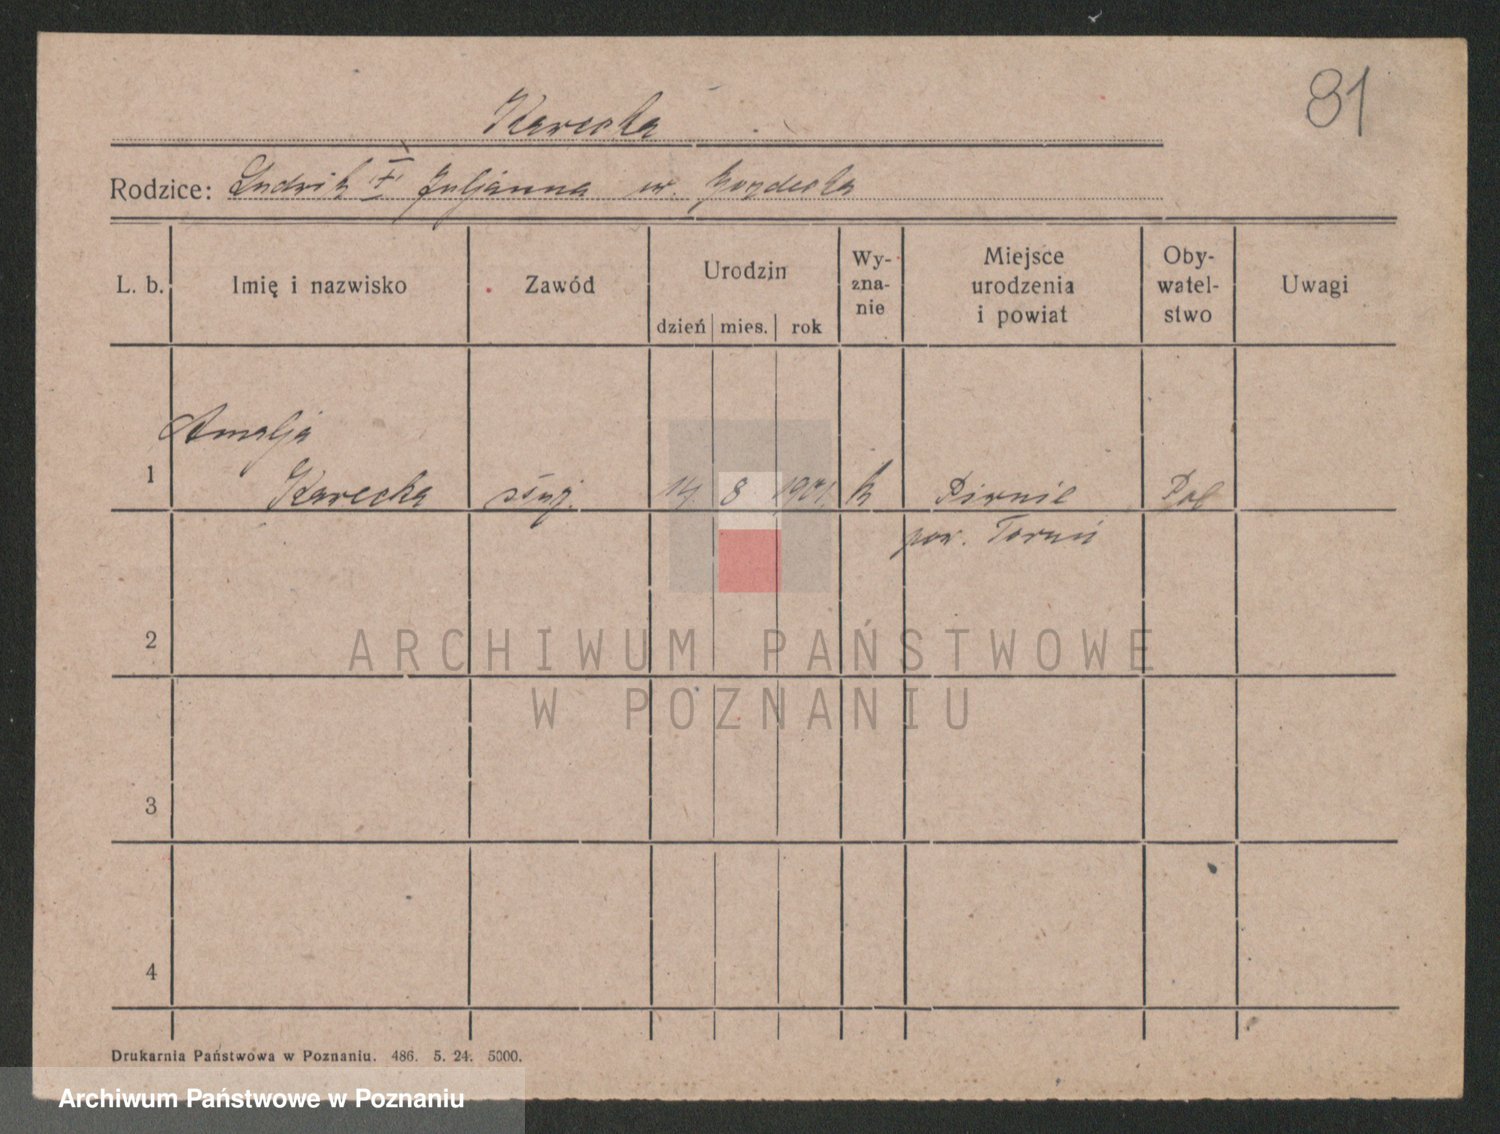 81
Karecka
Rodzice: Ludwik i Juljanna ur.
L. b.
Imię i nazwisko
Zawód
Urodzin
dzień mies. rok
Wy-
zna-
nie
Miejsce
urodzenia
i powiat
Oby-
watel-
stwo
Uwagi
Amalja
1 Karecka służ. 14 8 1901. k Pol
pow. Toruń
2
3
4
ARCHIWUM PAŃSTWOWE
W POZNANIU
Drukarnia Państwowa w Poznaniu. 486. 5. 24. 5000.
Archiwum Państwowe w Poznaniu